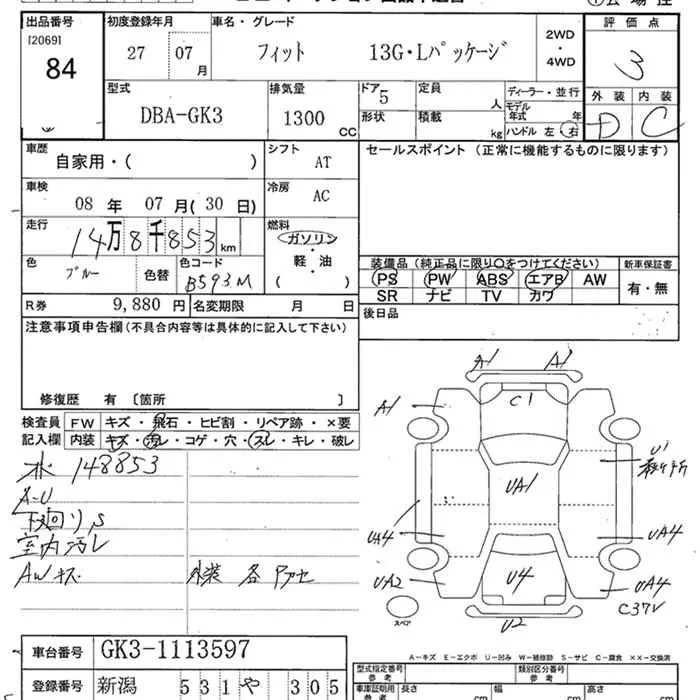 出品番号 初度登録年月 車名・グレード 評価点
[2069]
84 27 07月 フィット 13G・Lパッケージ 2WD・4WD 3
型式 排気量 ドア 定員 ディーラー・並行 外装 内装
DBA-GK3 1300CC 5 人 モデル年式 年 D C
形状 積載 kg ハンドル 左 右
車歴 シフト セールスポイント(正常に機能するものに限ります)
自家用・( ) AT
車検 冷房
08年 07月(30日) AC
走行 燃料
14万8千853km ガソリン
色 色コード 軽・油
ブルー 色替 B593M ( )
装備品(純正品に限り○をつけてください) 新車保証書
PS PW ABS エアB AW 有・無
SR ナビ TV カワ
R券 9,880円 名変期限 月 日
後日品
注意事項申告欄(不具合内容等は具体的に記入して下さい)
修復歴 有〔箇所 〕
検査員 FW キズ・飛石・ヒビ割・リペア跡・×要
記入欄 内装 キズ・汚レ・コゲ・穴・スレ・キレ・破レ
148853
A-U
下回りS
室内汚レ
AWキズ 外装 各
A1 A1
C1
A1
U1
UA1
UA4 UA4
UA2 U4 UA4
C37V
スペア
U2
A-キズ E-エクボ U-凹み W-補修跡 S-サビ C-腐食 ××-交換済
車台番号 GK3-1113597
型式指定番号 参考 類別区分番号 参考
登録番号 新潟 531 や 305
車庫証明用 参考 長さ cm 幅 cm 高さ cm